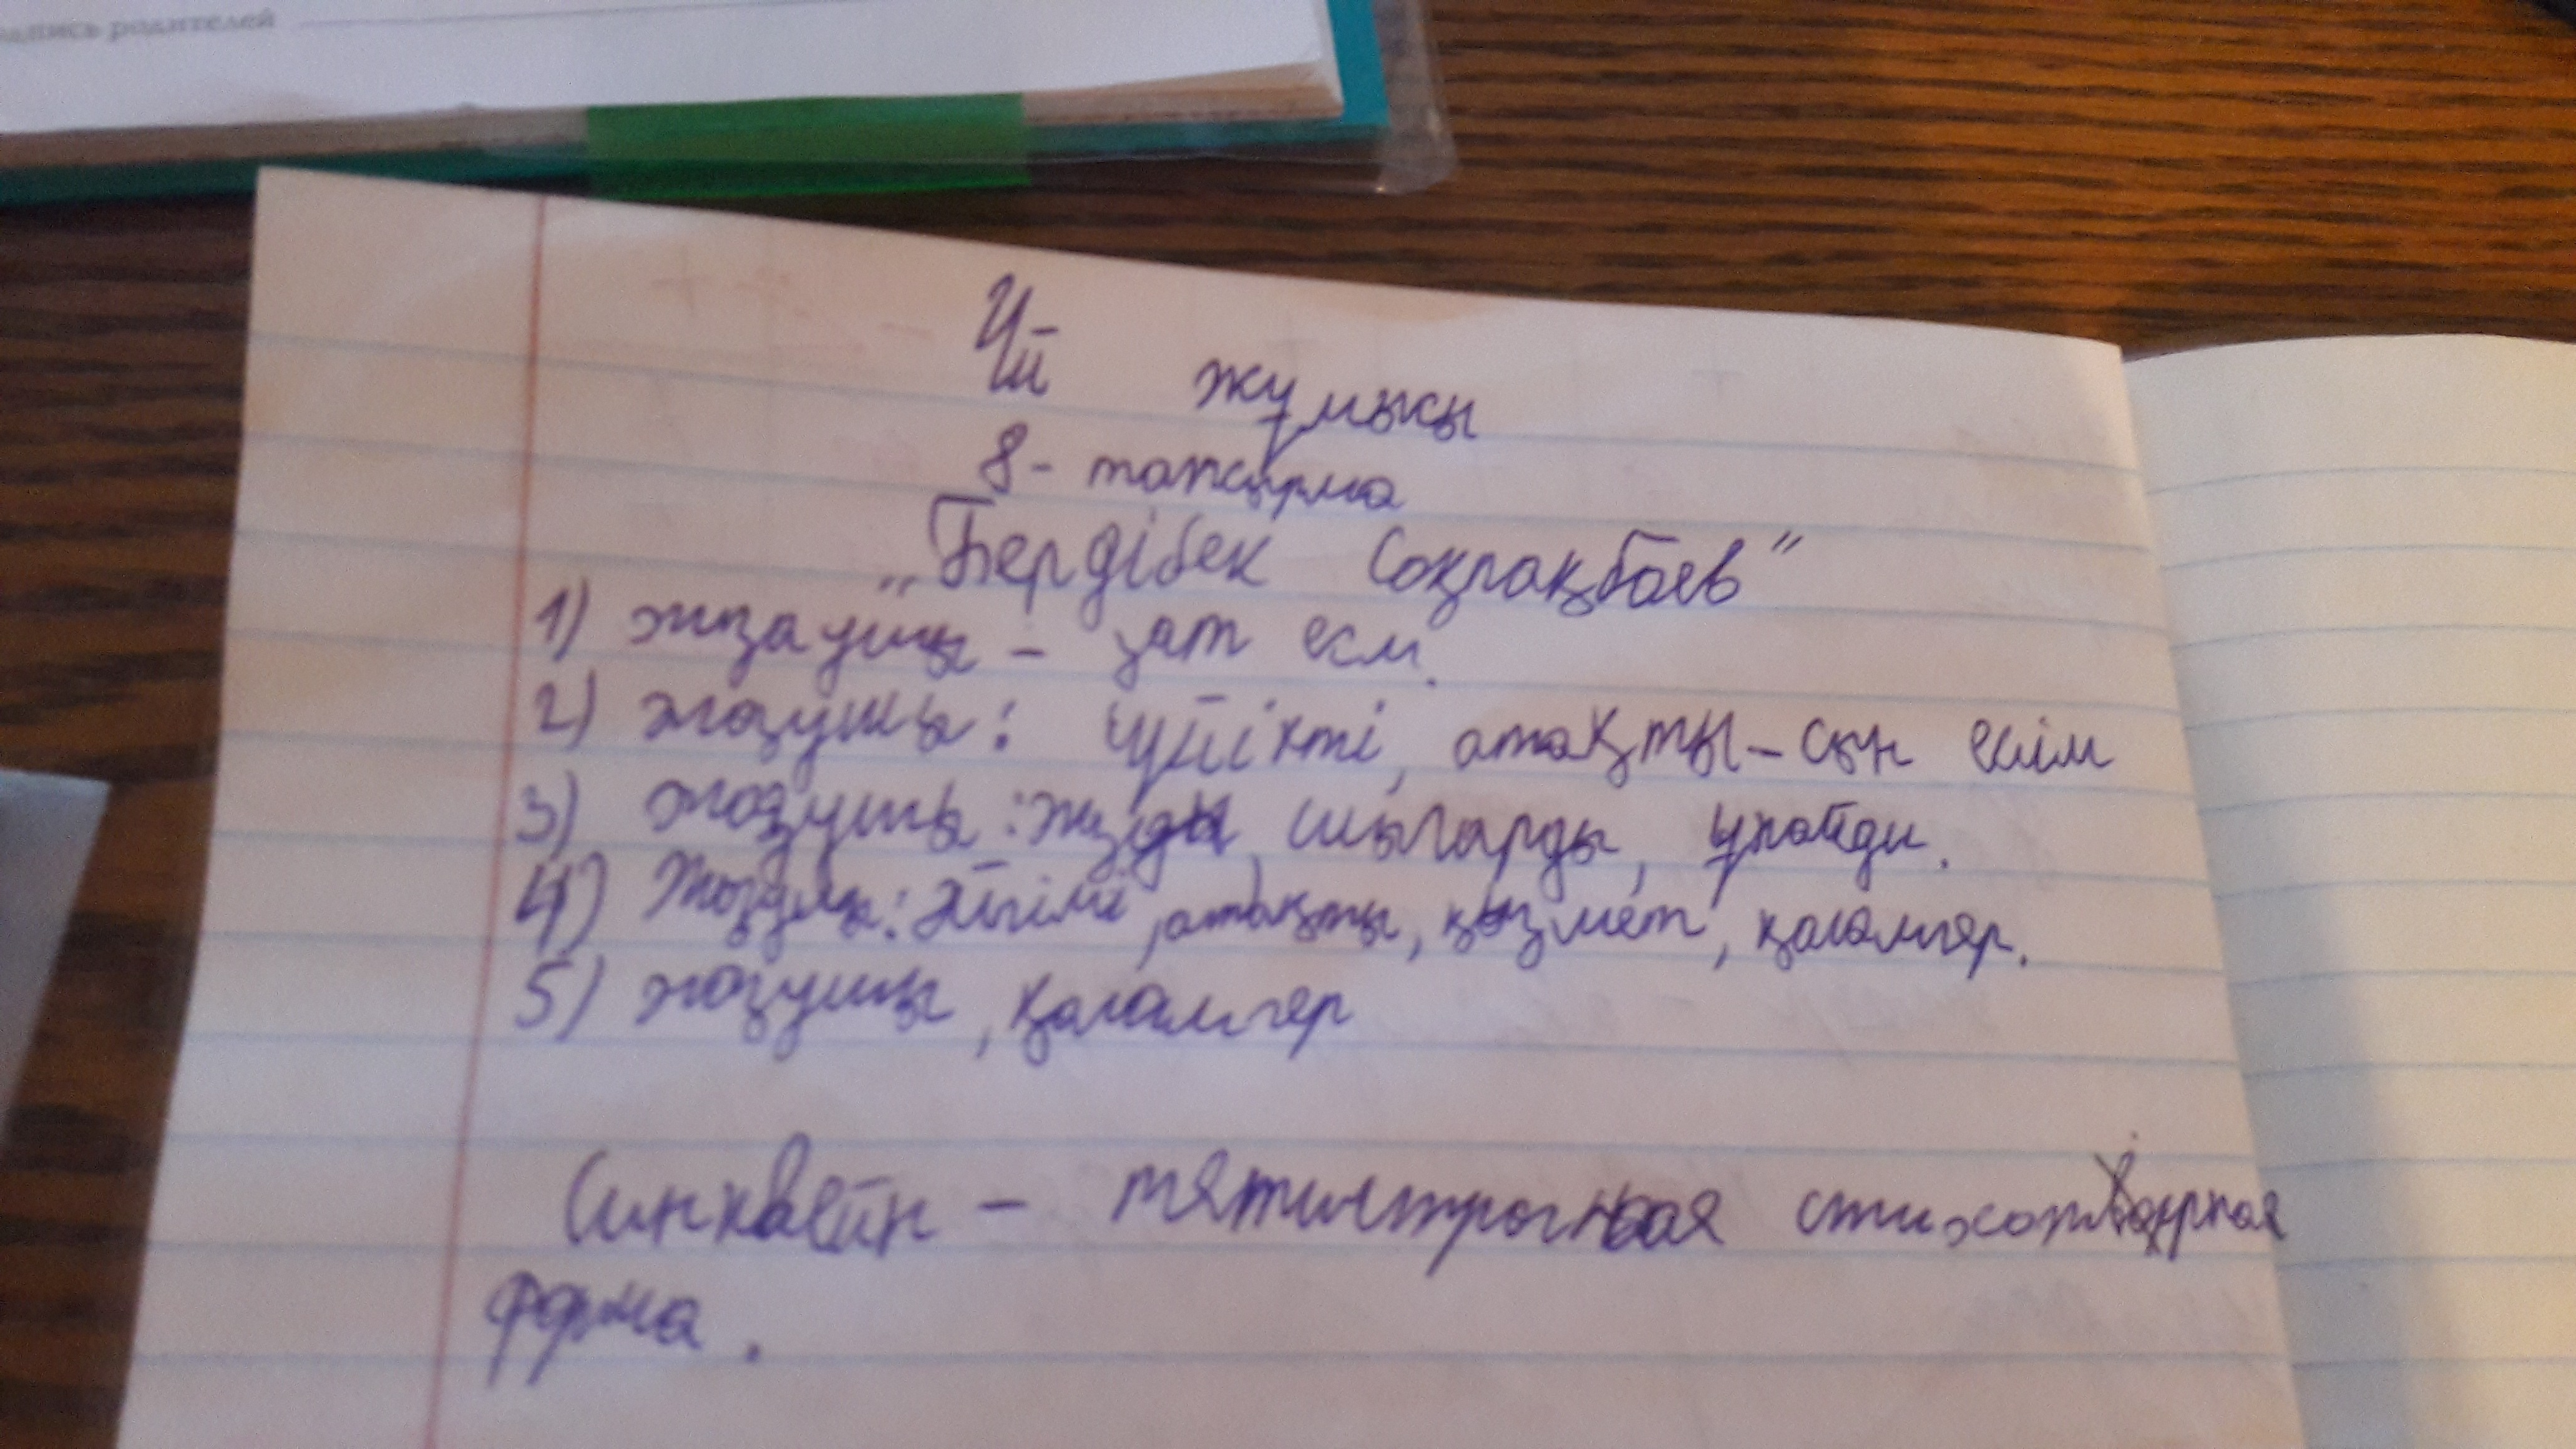 дпись родителей
Үй жұмысы
8- тапсырма
„Бердібек Соқпақбаев"
1) жазушы – зат есм.
2) жазушы: үйікті, атақты – сын есім
3) жазушы: жазды, шығарды, ұнайди.
4) Жазушы: әйгілі, атақты, қызмет, қаламгер.
5) жазушы, қаламгер
Синквейн – пятистрочная стихотворная
форма.